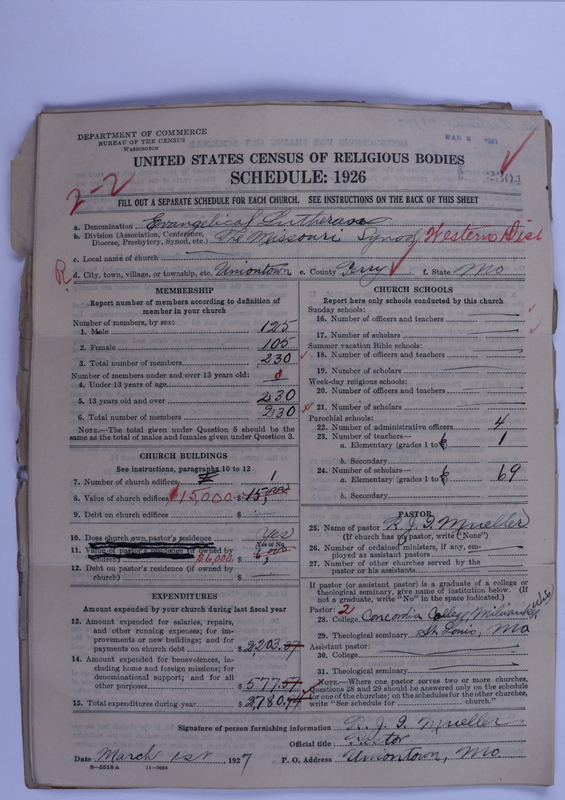 DEPARTMENT OF COMMERCE
BUREAU OF THE CENSUS
WASHINGTON
MAR 2
UNITED STATES CENSUS OF RELIGIOUS BODIES
SCHEDULE: 1926
2-2
FILL OUT A SEPARATE SCHEDULE FOR EACH CHURCH. SEE INSTRUCTIONS ON THE BACK OF THIS SHEET
a. Denomination Evangelical Lutheran
b. Division (Association, Conference, Diocese, Presbytery, Synod, etc.) The Missouri Synod Western Dist
c. Local name of church
R
d. City, town, village, or township, etc. Uniontown e. County Perry f. State Mo
MEMBERSHIP
Report number of members according to definition of
member in your church
Number of members, by sex:
1. Male 125
2. Female 105
3. Total number of members 230
Number of members under and over 13 years old:
4. Under 13 years of age
5. 13 years old and over 230
6. Total number of members 230
NOTE.—The total given under Question 6 should be
the same as the total of males and females given under Question 3.
CHURCH BUILDINGS
See instructions, paragraphs 10 to 12
7. Number of church edifices 1
8. Value of church edifices 15,000 $ 15,000
9. Debt on church edifices $
10. Does church own pastor's residence Yes
Yes or No
11. Value of pastor's residence (if owned by
church) $6,000 $ 6,000
12. Debt on pastor's residence (if owned by
church) $
EXPENDITURES
Amount expended by your church during last fiscal year
13. Amount expended for salaries, repairs,
and other running expenses; for im-
provements or new buildings; and for
payments on church debt $ 2203.37
14. Amount expended for benevolences, in-
cluding home and foreign missions; for
denominational support; and for all
other purposes $ 577.57
15. Total expenditures during year $ 2,780.94
CHURCH SCHOOLS
Report here only schools conducted by this church
Sunday schools:
16. Number of officers and teachers
17. Number of scholars
Summer vacation Bible schools:
18. Number of officers and teachers
19. Number of scholars
Week-day religious schools:
20. Number of officers and teachers
21. Number of scholars
Parochial schools:
22. Number of administrative officers 4
23. Number of teachers—
a. Elementary (grades 1 to 1
b. Secondary
24. Number of scholars—
a. Elementary (grades 1 to 69
b. Secondary
PASTOR
25. Name of pastor Mueller
(If church has no pastor, write "None")
26. Number of ordained ministers, if any, em-
ployed as assistant pastors
27. Number of other churches served by the
pastor or his assistants
If pastor (or assistant pastor) is a graduate of a college or
theological seminary, give name of institution below. (If
not a graduate, write "No" in the space indicated.)
Pastor: 2
28. College Concordia College, Milwaukee, Wis.
29. Theological seminary St. Louis, Mo
Assistant pastor:
30. College
31. Theological seminary
NOTE.—Where one pastor serves two or more churches,
Questions 28 and 29 should be answered only on the schedule
for one of the churches; on the schedules for the other churches,
write "See schedule for church."
Signature of person furnishing information Mueller
Official title Pastor
Date March 1st, 1927 P. O. Address Uniontown, Mo.
8—5518a 11—9064